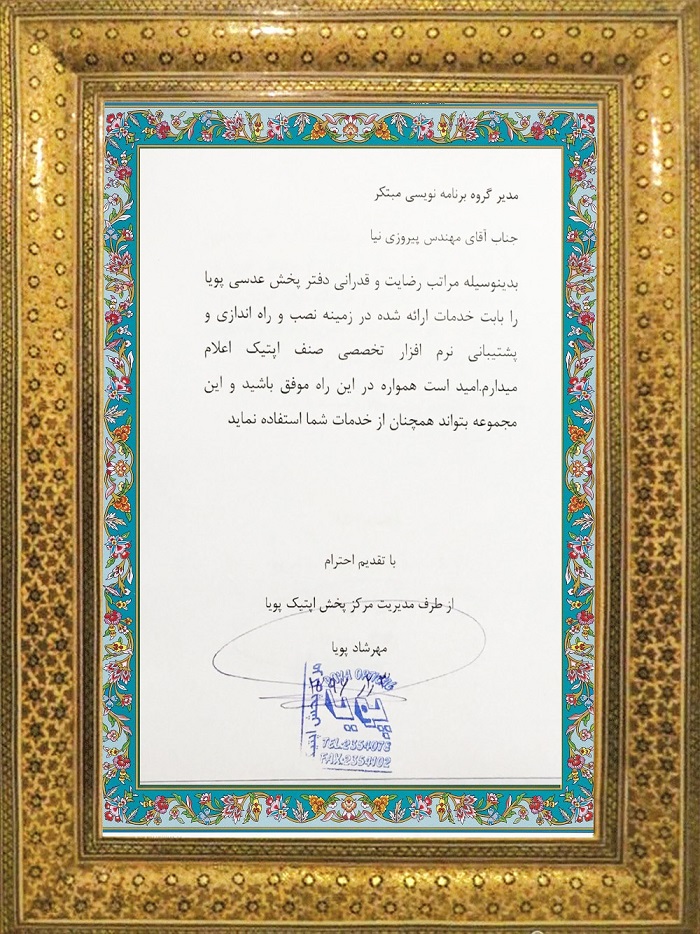 مدیر گروه برنامه نویسی مبتکر
جناب آقای مهندس پیروزی نیا
بدینوسیله مراتب رضایت و قدرانی دفتر پخش عدسی پویا
را بابت خدمات ارائه شده در زمینه نصب و راه اندازی و
پشتیبانی نرم افزار تخصصی صنف اپتیک اعلام
میدارم.امید است همواره در این راه موفق باشید و این
مجموعه بتواند همچنان از خدمات شما استفاده نماید
با تقدیم احترام
از طرف مدیریت مرکز پخش اپتیک پویا
مهرشاد پویا
مرکز پخش اپتیک
TEL:2354078
FAX:2354102